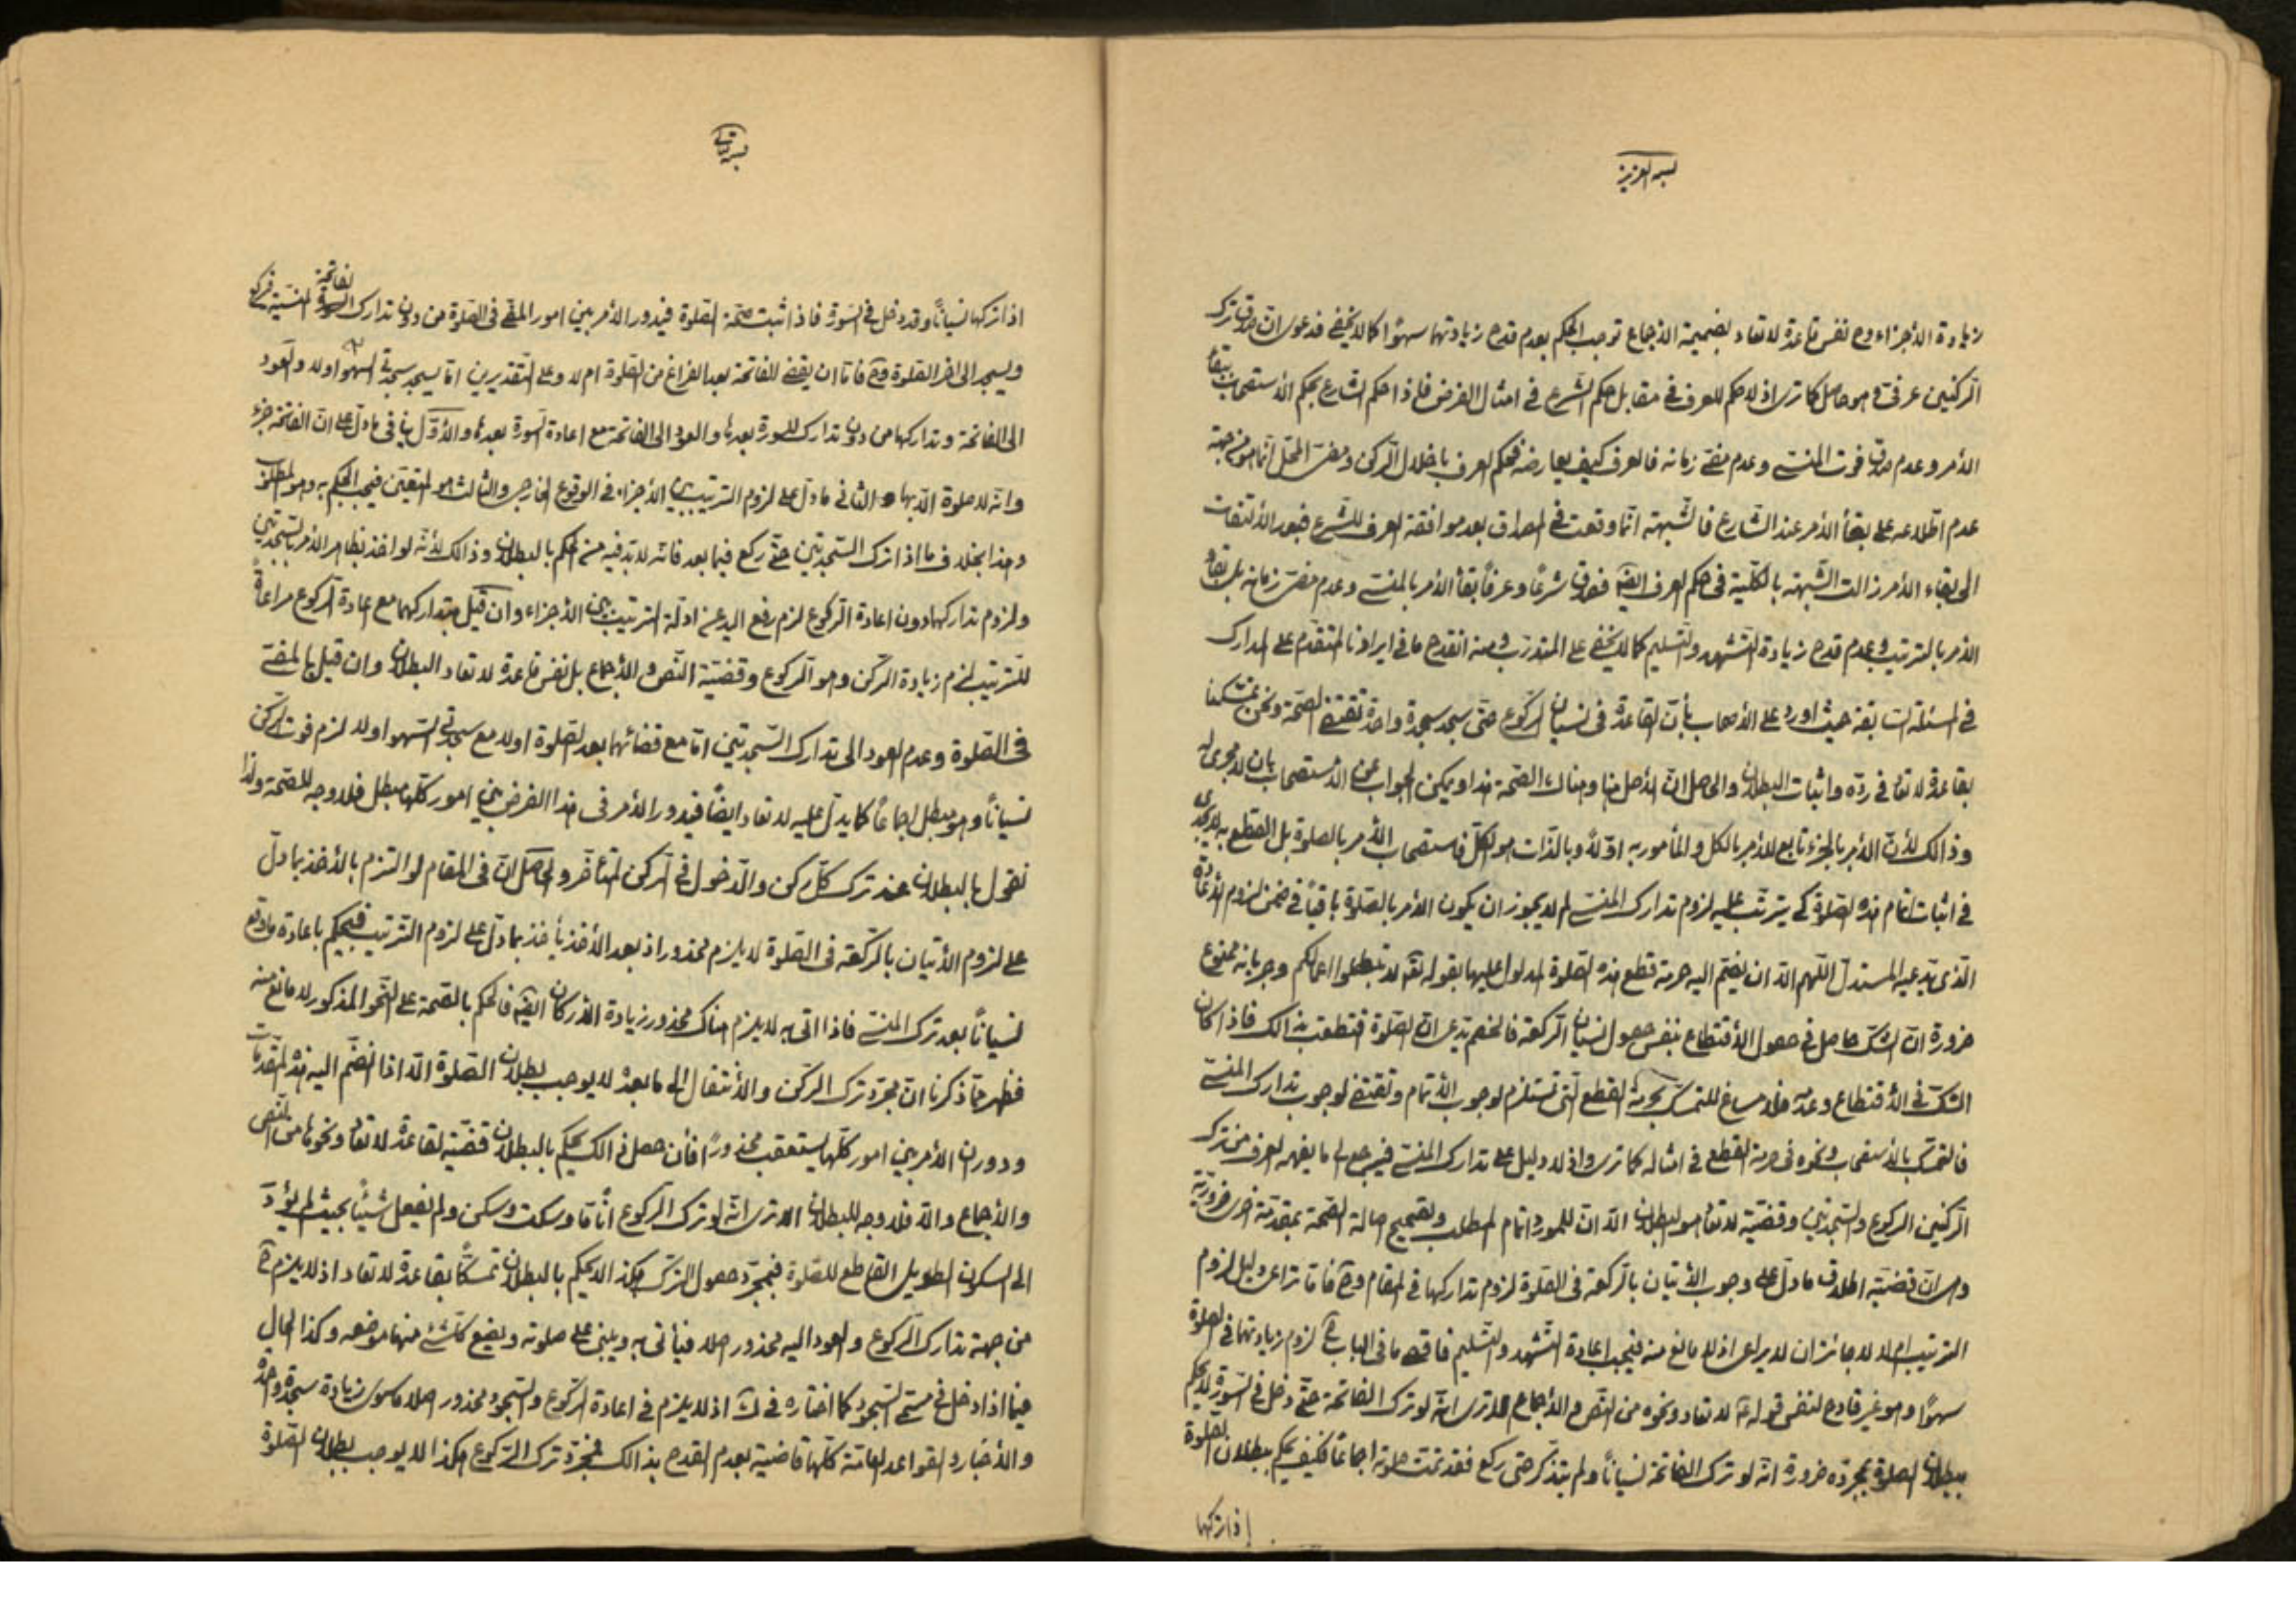 بسمه العزيز
زيادة الأجزاء وح نفس قاعدة لا تعاد بضميمة الاجماع توجب الحكم بعدم قدح زيادتهما سهوا كما لا يخفى فدعوى ان صدق ترك
الركنين عرفى و هو حاصل كما ترى اذ لا حكم للعرف فى مقابل حكم الشرع فى امثال الفرض فاذا حكم الشارع بحكم الأستصحاب ببقاء
الأمر وعدم صدق فوت المنسى وعدم مضى زمانه فالعرف كيف يعارضه فحكم العرف باخلال الركن ومضى المحل انما هو من جهة
عدم اطلاعه على بقأ الأمر عند الشارع فالشبهة انما وقعت فى المصداق بعد موافقة العرف للشرع فبعد الألتفات
الى بقاء الأمر زالت الشبهة بالكلية فى حكم العرف ايضا فصدق شرعا وعرفا بقأ الأمر بالمنسى وعدم مضى زمانه بل بقاء
الأمر بالترتيب وعدم قدح زيادة التشهد والتسليم كما لا يخفى على المتدرب ومنه انقدح ما فى ايرادنا المتقدم على المدارك
فى المسئلة السابقة حيث اورد على الأصحاب بأن القاعدة فى نسيان الركوع حتى سجد سجدة واحدة تقتضى الصحة ونحن تمسكنا
بقاعدة لا تعاد فى رده واثبات البطلان والحاصل ان الأصل هنا وهناك الصحة هذا ويمكن الجواب عن الاستصحاب بان لا مجرى له
وذالك لأن الأمر بالجزء تابع للأمر بالكل والمأمور به اولا وبالذات هو الكل فاستصحاب الأمر بالصلوة بل القطع به لا يجدى
فى اثبات اتمام هذه الصلوة كى يترتب عليه لزوم تدارك المنسى لم لا يجوز ان يكون الأمر بالصلوة باقيا فى ضمن لزوم الأعادة
الذى يدعيه المستدل اللهم الا ان يضم اليه حرمة قطع هذه الصلوة المدلول عليها بقوله تعه لا تبطلوا اعمالكم وجريانه ممنوع
ضرورة ان الشك حاصل فى حصول الأقتطاع بنفس حصول نسيان الركعة فالخصم يدعى ان الصلوة قتطعت بذالك فاذا كان
الشك فى الأقتطاع وعدمه فلا مساغ للتمسك بحرمة القطع التى تستلزم لوجوب الأتمام وتقتضى لوجوب تدارك المنسى
فالتمسك بالاستصحاب ونحوه فى حرمة القطع فى امثاله كما ترى واذ لا دليل على تدارك المنسى فيرجع الى ما يفهمه العرف من ترك
الركنين الركوع والسجدتين وقضية لا تعاد هو البطلان الا ان للمورد اتمام المطلب وتصحيح اصالة الصحة بمقدمة اخرى ضرورية
وهى ان قضية اطلاق ما دل على وجوب الأتيان بالركعة فى الصلوة لزوم تداركها فى المقام وح فاما تراعى دليل لزوم
الترتيب ام لا لا جائز ان لا يراعى اذ لا مانع منه فيجب اعادة التشهد والتسليم فاقصى ما فى الباب ح لزوم زيادتهما فى الصلوة
سهوا وهو غير قادح لنفس قوله ع لا تعاد ونحوه من النص والأجماع الا ترى انه لو ترك الفاتحة حتى دخل فى السورة لا يحكم
ببطلان الصلوة بمجرده ضرورة انه لو ترك الفاتحة نسيانا ولم يتذكر حتى ركع فقد تمت صلوته اجماعا فكيف يحكم ببطلان الصلوة
إذا تركها
بسمه تعالى
اذا تركها نسيانا وقد دخل فى السورة فاذا ثبت صحة الصلوة فيدور الأمر بين امور المضى فى الصلوة من دون تدارك الفاتحة المنسية فيركع
ويسجد الى اخر الصلوة وح فاما ان يقضى للفاتحة بعد الفراغ من الصلوة ام لا وعلى التقديرين اما يسجد سجدتى السهو اولا والعود
الى الفاتحة وتداركها من دون تدارك للسورة بعدها والعود الى الفاتحة مع اعادة السورة بعدها والأول ينافى ما دل على ان الفاتحة جزء
وانه لا صلوة الا بها والثانى ما دل على لزوم الترتيب بين الأجزاء فى الوقوع الخارجى والثالث هو المتعين فيجب الحكم به وهو المطلوب
وهذا بخلاف ما اذا ترك السجدتين حتى ركع فيما بعد فانه لا بد فيه من الحكم بالبطلان وذالك لأنه لو اخذ بظاهر الأمر بالسجدتين
ولزوم تداركهما دون اعادة الركوع لزم رفع اليد عن ادلة الترتيب بين الأجزاء وان قيل بتداركهما مع اعادة الركوع مراعاة
للترتيب لزم زيادة الركن وهو الركوع وقضية النص والأجماع بل نفس قاعدة لا تعاد البطلان وان قيل بالمضى
فى الصلوة وعدم العود الى تدارك السجدتين اما مع قضائهما بعد الصلوة اولا مع سجدتى السهو اولا لزم فوت الركن
نسيانا وهو مبطل اجماعا كما يدل عليه لا تعاد ايضا فيدور الأمر فى هذا الفرض بين امور كلها مبطل فلا وجه للصحة ولذا
نقول بالبطلان عند ترك كل ركن والدخول فى الركن المتأخر والحاصل ان فى المقام لو التزم بالأخذ بما دل
على لزوم الأتيان بالركعة فى الصلوة لا يلزم محذور اذ بعد الأخذ يأخذ بما دل على لزوم الترتيب فيحكم باعادة ما وقع
نسيانا بعد ترك المنسى فاذا اتى به لا يلزم هناك محذور زيادة الأركان ايضا فالحكم بالصحة على النحو المذكور لا مانع منه
فظهر مما ذكرنا ان مجرد ترك الركن والأنتقال الى ما بعده لا يوجب بطلان الصلوة الا اذا انضم اليه هذه المقدمات
ودوران الأمر بين امور كلها يستعقب محذورا فأن حصل ذالك يحكم بالبطلان قضية لقاعدة لا تعاد ونحوها من النص
والأجماع والا فلا وجه للبطلان الا ترى انه لو ترك الركوع انا قا وسكت وسكن ولم يفعل شيئا بحيث لم يؤد
الى السكوت الطويل القاطع للصلوة فبمجرد حصول الترك هكذا لا يحكم بالبطلان تمسكا بقاعدة لا تعاد اذ لا يلزم ح
من جهة تدارك الركوع والعود اليه محذور اصلا فيأتى به ويبنى على صلوته ويضع كل شئ منها موضعه وكذا الحال
فيما اذا دخل فى مسمى السجود كما اختاره فى اذ لا يلزم فى اعادة الركوع والسجود محذور اصلا سوى زيادة سجدة واحدة
والأخبار والقواعد العامة كلها قاضية بعدم القدح بذالك فمجرد ترك الركوع هكذا لا يوجب بطلان الصلوة